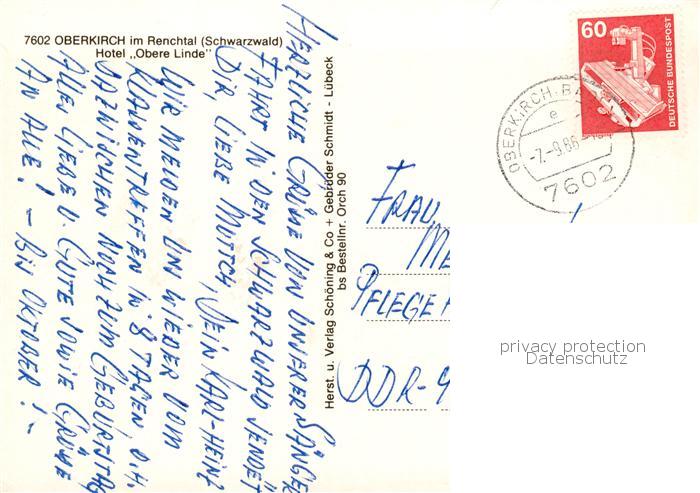 7602 OBERKIRCH im Renchtal (Schwarzwald)
Hotel „Obere Linde"
HERZLICHE GRÜßE VON UNSERER SÄNGER
FAHRT IN DEN SCHWARZWALD SENDET
DIR, LIEBE MUTSCH, DEIN KARL-HEINZ
WIR MELDEN UNS WIEDER VOM
KLASSENTREFFEN IN 8 TAGEN, D.H.
DAZWISCHEN NOCH ZUM GEBURTSTAG
ALLES LIEBE U. GUTE SOWIE GRÜßE
AN ALLE! - BIS OKTOBER! -
Herst. u. Verlag Schöning & Co + Gebrüder Schmidt - Lübeck
bs Bestellnr. Orch 90
60
DEUTSCHE BUNDESPOST
OBERKIRCH, BA
e
-7.-9.86
7602
FRAU
ME
PFLEGE
DDR-9
privacy protection
Datenschutz